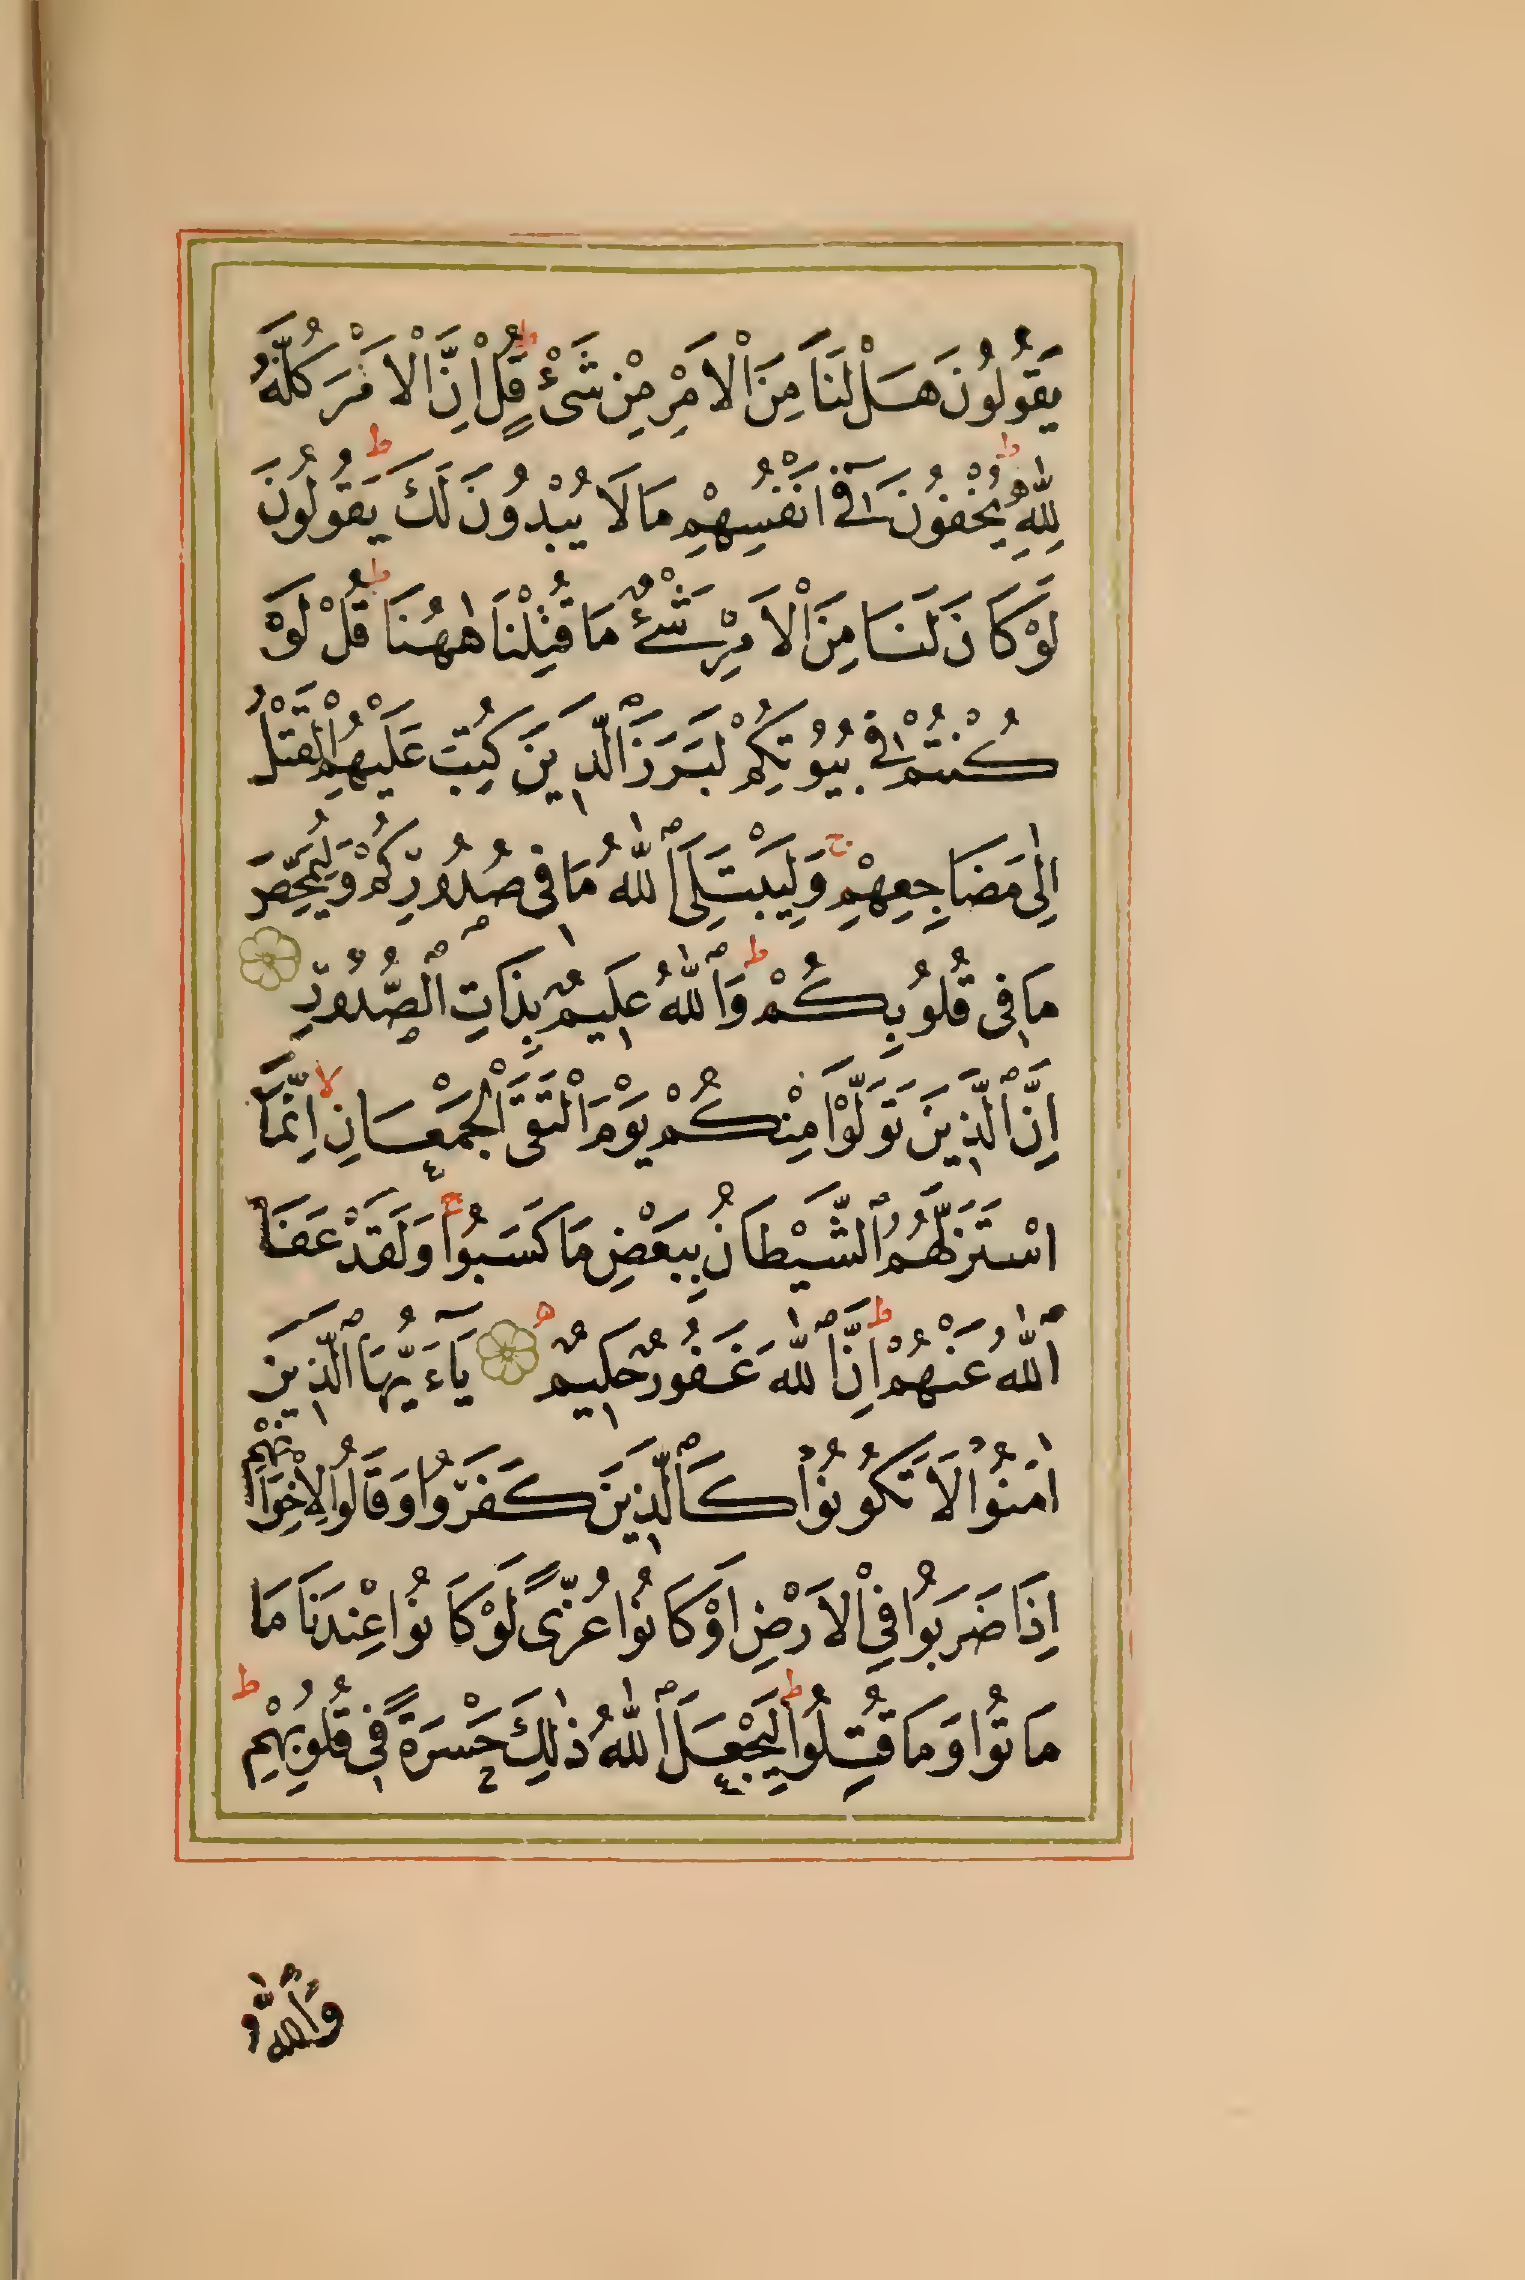 يَقُولُونَ هَلْ لَنَا مِنَ الْاَمْرِ مِنْ شَیْءٍ ط قُلْ اِنَّ الْاَمْرَ كُلَّهُ
لِلّٰهِ ط يُخْفُونَ فِٓى اَنْفُسِهِمْ مَا لَا يُبْدُونَ لَكَ ط يَقُولُونَ
لَوْ كَانَ لَنَا مِنَ الْاَمْرِ شَیْءٌ مَا قُتِلْنَا هٰهُنَا ط قُلْ لَوْ
كُنْتُمْ فِى بُيُوتِكُمْ لَبَرَزَ ٱلَّذِينَ كُتِبَ عَلَيْهِمُ الْقَتْلُ
اِلٰى مَضَاجِعِهِمْ ج وَلِيَبْتَلِىَ ٱللّٰهُ مَا فِى صُدُورِكُمْ وَلِيُمَحِّصَ
مَا فِى قُلُوبِكُمْ ط وَٱللّٰهُ عَلِيمٌ بِذَاتِ ٱلصُّدُورِ
اِنَّ ٱلَّذِينَ تَوَلَّوْا مِنْكُمْ يَوْمَ الْتَقَى الْجَمْعَانِ لا اِنَّمَا
اسْتَزَلَّهُمُ ٱلشَّيْطَانُ بِبَعْضِ مَا كَسَبُوا ج وَلَقَدْ عَفَا
ٱللّٰهُ عَنْهُمْ ط اِنَّ ٱللّٰهَ غَفُورٌ حَلِيمٌ ه يَٓاءَيُّهَا ٱلَّذِينَ
اٰمَنُوا لَا تَكُونُوا كَٱلَّذِينَ كَفَرُوا وَقَالُوا لِاِخْوَانِهِمْ
اِذَا ضَرَبُوا فِى الْاَرْضِ اَوْ كَانُوا غُزًّى لَوْ كَانُوا عِنْدَنَا مَا
مَاتُوا وَمَا قُتِلُوا ط لِيَجْعَلَ ٱللّٰهُ ذٰلِكَ حَسْرَةً فِى قُلُوبِهِمْ ط
وَٱللّٰهُ